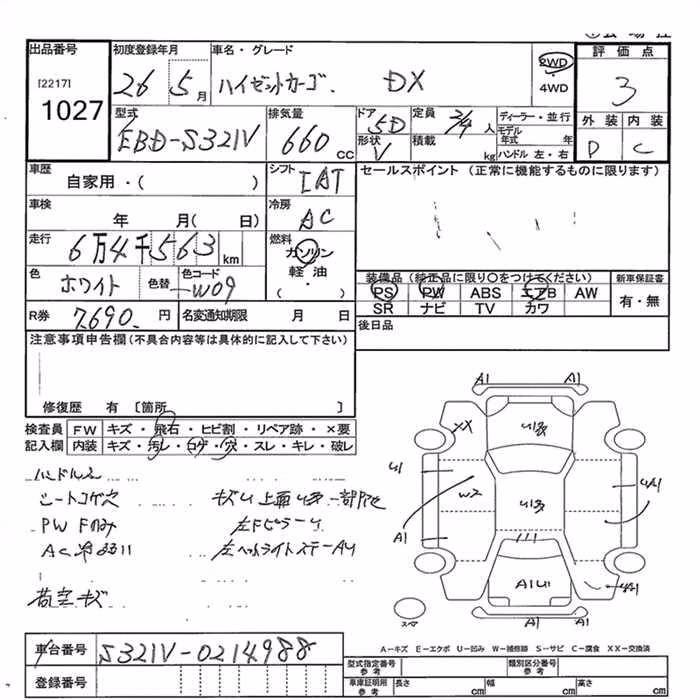 出品番号 初度登録年月 車名・グレード 評価点
[2217] 26 5月 ハイゼットカーゴ DX 2WD 4WD 3
1027
型式 排気量 ドア 5D 定員 2/4人 ディーラー・並行 外装 内装
EBD-S321V 660cc 形状 V 積載 kg モデル年式 年 D C
ハンドル 左・右
車歴 シフト IAT セールスポイント (正常に機能するものに限ります)
自家用・( )
車検 年 月( 日) 冷房 AC
走行 6万4千563km 燃料 ガソリン 軽油 ・( )
色 ホワイト 色替 色コード W09
装備品 (純正品に限り○をつけてください) 新車保証書
PS PW ABS エアB AW 有・無
SR ナビ TV カワ
R券 7,690円 名変通知期限 月 日 後日品
注意事項申告欄 (不具合内容等は具体的に記入して下さい)
修復歴 有 〔箇所 〕
検査員 FW キズ・飛石・ヒビ割・リペア跡・×要
記入欄 内装 キズ・汚レ・コゲ・穴・スレ・キレ・破レ
ハンドルス
シートコゲ穴
PW Fのみ 左FピラーU
左ヘッドライトステーAU
荷室キズ
A1 A1
XX
U1 W2
A1
A1U1
A1 A1
スペ
A-キズ E-エクボ U-凹み W-補修跡 S-サビ C-腐食 XX-交換済
車台番号 S321V-0214988
登録番号
型式指定番号 参考 類別区分番号 参考
車庫証明用 参考 長さ cm 幅 cm 高さ cm